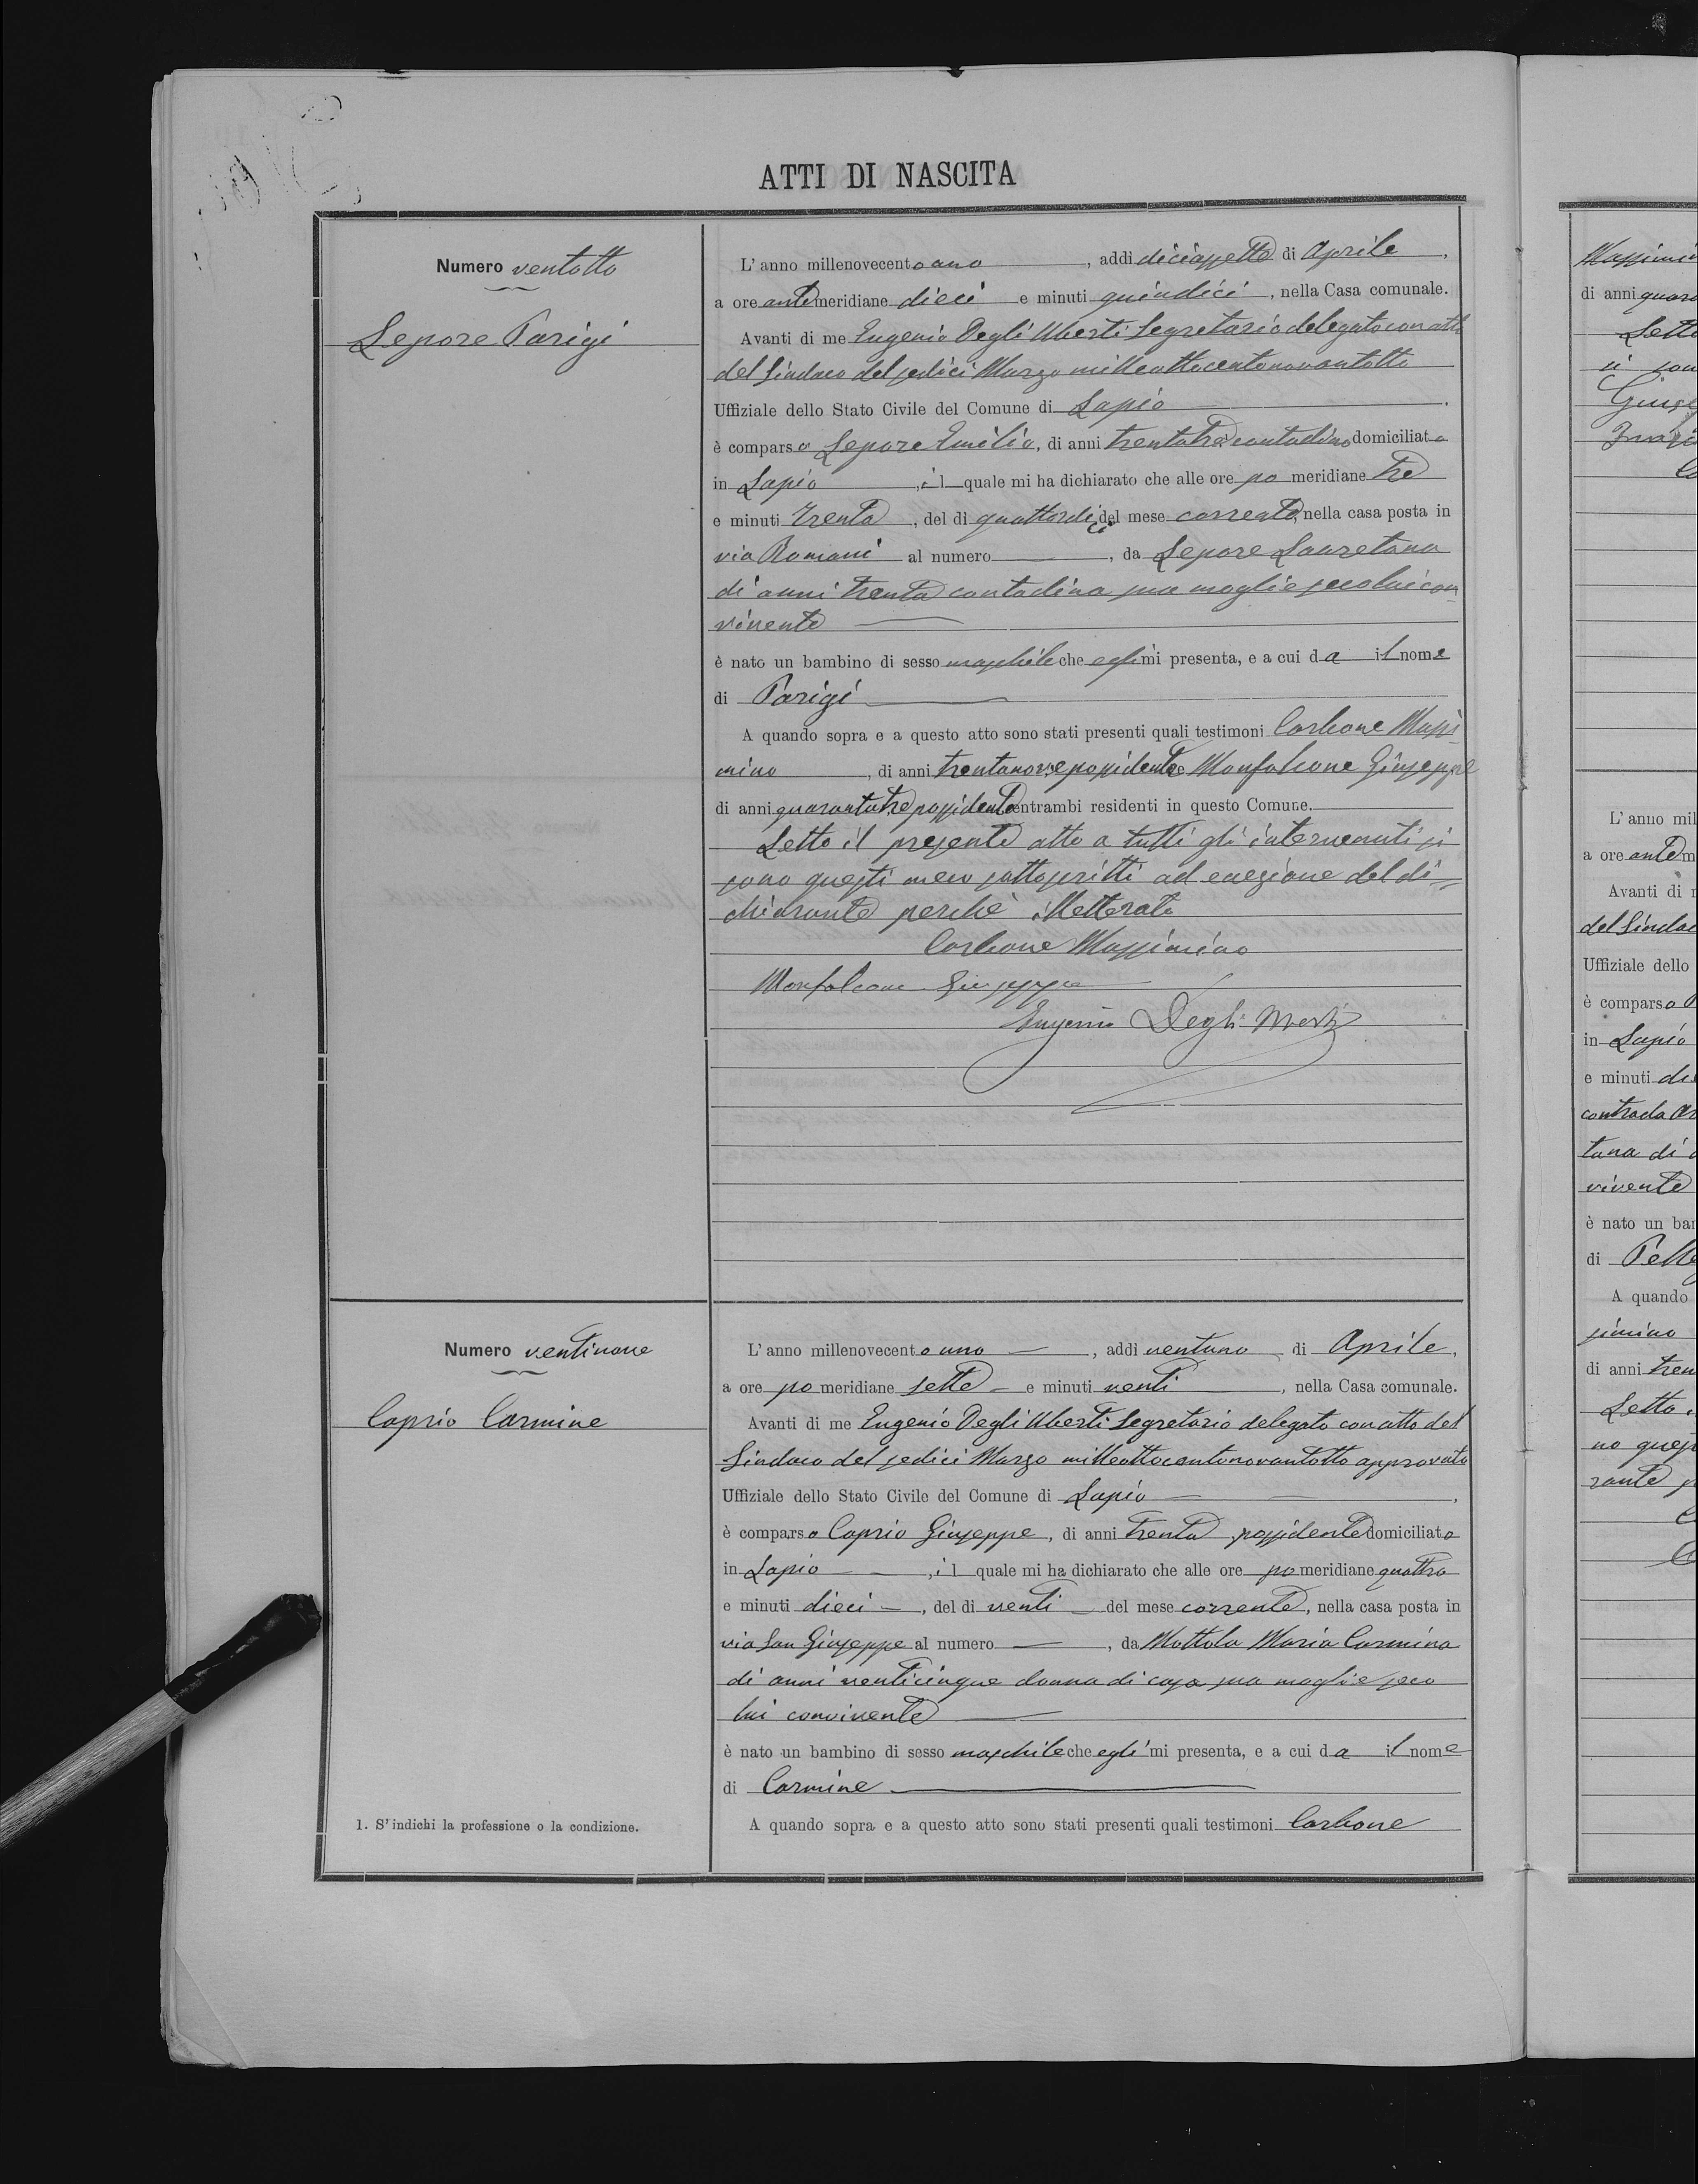 ATTI DI NASCITA
Numero ventotto
Lepore Parigi
L'anno millenovecento uno, addì diciassette di Aprile,
a ore antemeridiane dieci e minuti quindici, nella Casa comunale.
Avanti di me Eugenio Degli Uberti Segretario delegato con atto
del Sindaco del sedici Marzo milleottocentonovantotto
Uffiziale dello Stato Civile del Comune di Lapio.
è comparso Lepore Emilio, di anni trentatre contadino domiciliato
in Lapio, il quale mi ha dichiarato che alle ore pomeridiane tre
e minuti trenta, del dì quattordici del mese corrente, nella casa posta in
via Romani al numero, da Lepore Lauretana
di anni trenta contadina sua moglie seco lui con
vivente
è nato un bambino di sesso maschile che egli mi presenta, e a cui da il nome
di Parigi
A quando sopra e a questo atto sono stati presenti quali testimoni Carbone Massi-
mino, di anni trentanove possidente e Monfalcone Giuseppe
di anni quarantatre possidente entrambi residenti in questo Comune.
Letto il presente atto a tutti gli intervenuti si
sono questi meco sottoscritti ad eccezione del di=
chiarante perchè illetterato
Carbone Massimino
Monfalcone Giuseppe
Eugenio Degli Uberti
Numero ventinove
Caprio Carmine
L'anno millenovecento uno —, addì ventuno di Aprile,
a ore pomeridiane sette — e minuti venti, nella Casa comunale.
Avanti di me Eugenio Degli Uberti Segretario delegato con atto del
Sindaco del sedici Marzo milleottocentonovantotto approvato
Uffiziale dello Stato Civile del Comune di Lapio —,
è comparso Caprio Giuseppe, di anni trenta possidente domiciliato
in Lapio —, il quale mi ha dichiarato che alle ore pomeridiane quattro
e minuti dieci —, del dì venti — del mese corrente, nella casa posta in
via San Giuseppe al numero —, da Mottola Maria Carmina
di anni venticinque donna di casa sua moglie seco
lui convivente
è nato un bambino di sesso maschile che egli mi presenta, e a cui da il nome
di Carmine
A quando sopra e a questo atto sono stati presenti quali testimoni Carbone
1. S'indichi la professione o la condizione.
di anni
Letto
L'anno mil
a ore antem
Avanti di
del Sindac
Uffiziale dello
è comparso
in Lapio
e minuti
contrada
tana di
vivente
è nato un
di Pelle
A quando
simino
di anni tren
Letto